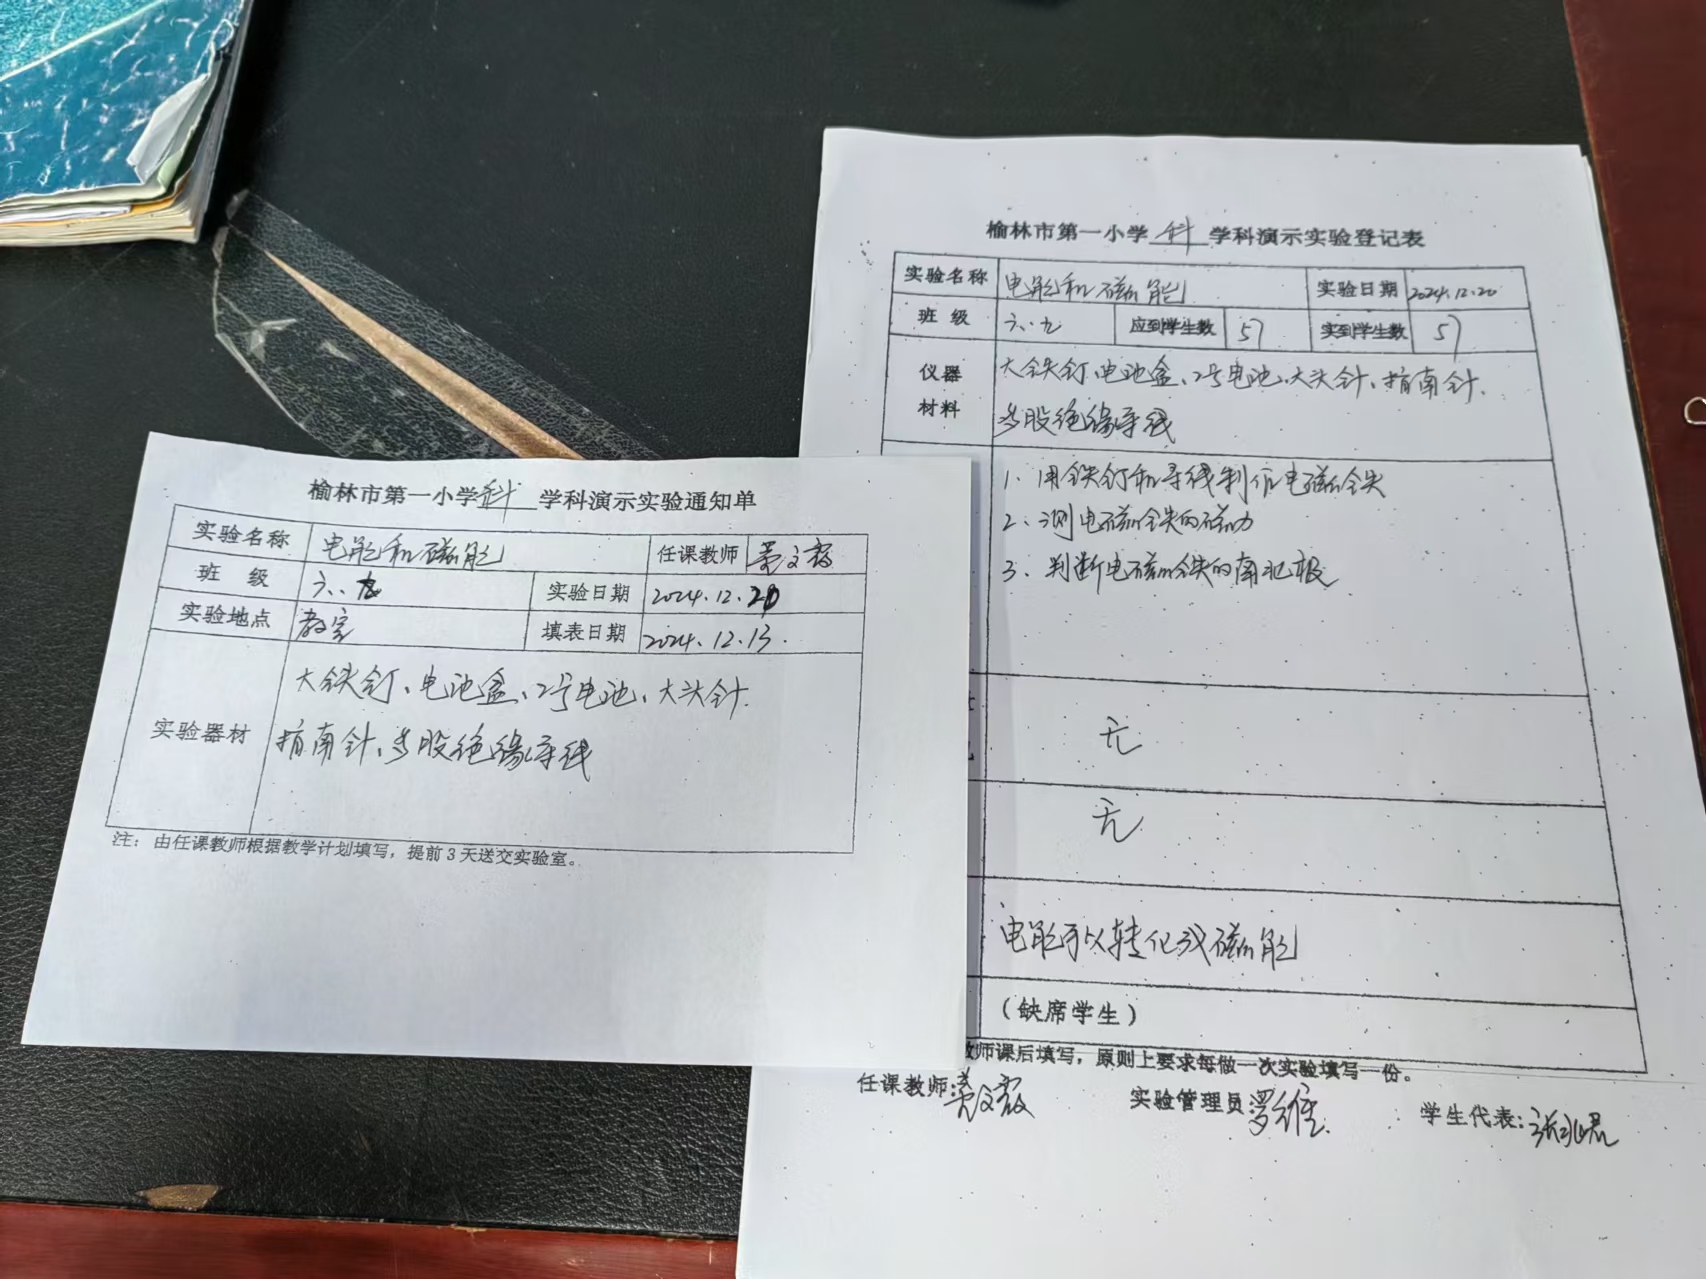 榆林市第一小学 科 学科演示实验通知单
实验名称 电能和磁能 任课教师
班 级 六.九 实验日期 2024.12.20
实验地点 教室 填表日期 2024.12.13.
实验器材
大铁钉、电池盒、2号电池、大头针.
指南针、多股绝缘导线
注：由任课教师根据教学计划填写，提前3天送交实验室。
榆林市第一小学 科 学科演示实验登记表
实验名称 电能和磁能 实验日期 2024.12.20
班 级 六.九 应到学生数 57 实到学生数 57
仪器
材料
大铁钉、电池盒、2号电池、大头针、指南针.
多股绝缘导线
1. 用铁钉和导线制作电磁铁
2. 测电磁铁的磁力
3. 判断电磁铁的南北极
无
无
电能可以转化成磁能
（缺席学生）
教师课后填写，原则上要求每做一次实验填写一份。
任课教师: 实验管理员 罗维 学生代表: